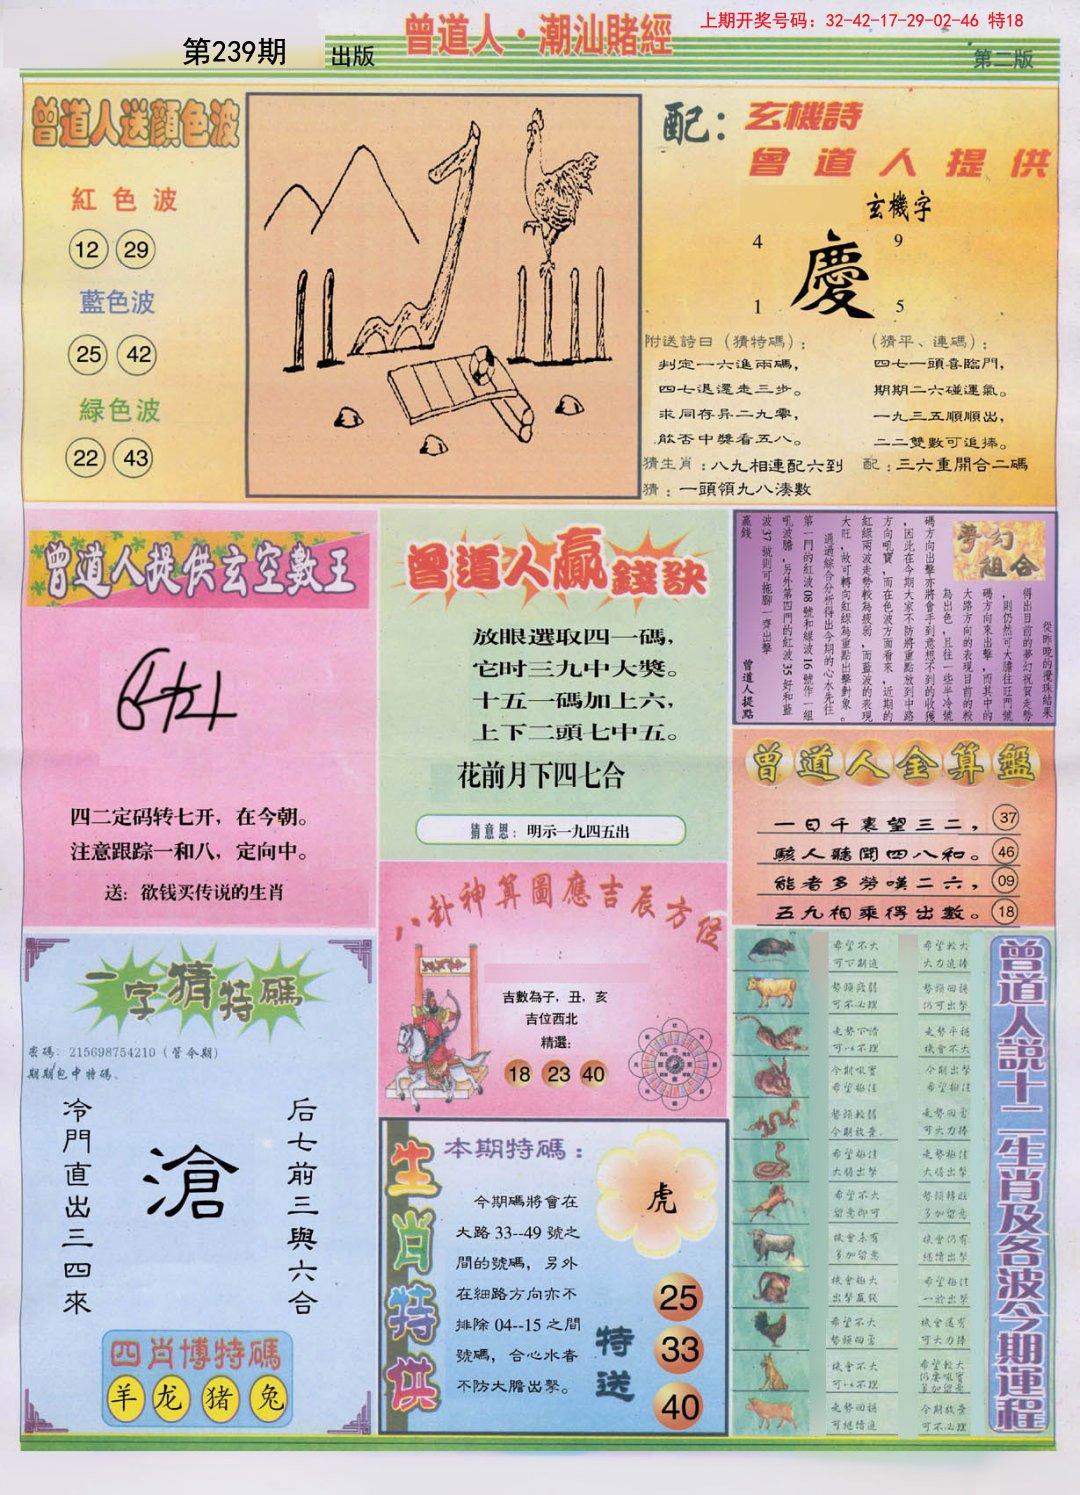 上期开奖号码：32-42-17-29-02-46 特18
第239期
出版
曾道人·潮汕賭經
第二版
曾道人送顏色波
紅色波
12 29
藍色波
25 42
緑色波
22 43
配：玄機詩
曾道人提供
玄機字
4 9
慶
1 5
附送詩曰（猜特碼）：
判定一六進兩碼，
四七退還走三步。
求同存异二九零，
能否中獎看五八。
（猜平、連碼）：
四七一頭喜臨門，
期期二六碰運氣。
一九三五順順出，
二二雙數可追捧。
猜生肖：八九相連配六到
配：三六重開合二碼
猜：一頭領九八湊數
曾道人提供玄空數王
四二定码转七开，在今朝。
注意跟踪一和八，定向中。
送：欲钱买传说的生肖
曾道人贏錢訣
放眼選取四一碼，
它时三九中大獎。
十五一碼加上六，
上下二頭七中五。
花前月下四七合
猜意思：明示一九四五出
夢幻組合
從昨晚的攪珠結果
得出目前的夢幻祝賀走勢
，則仍然可大膽往旺門號
碼方向來出擊，而其中的
大路方向的表現目前的較
為出色，且往一些半冷號
碼方向出擊亦將會手到意想不到的收獲
，因此在今期大家不防將重點放到中路
方向吼寶，而在色波方面看來，近期的
紅緑兩波走勢較為疲弱，而藍波的表現
大旺，故可轉向紅緑為重點出擊對象。
通過綜合分析得出今期的心水先往
第一門的紅波08號和緑波16號作一組
吼波膽，另外第四門的紅波35好和藍
波37號則可拖腳一齊出擊
贏錢
曾道人提點
曾道人全算盤
一日千裏望三二，37
駭人聽聞四八和。46
能者多勞嘆二六，09
五九相乘得出數。18
八卦神算圖應吉辰方位
吉數為子，丑，亥
吉位西北
精選：
18 23 40
一字猜特碼
密碼：215698754210（管令期）
期期包中特碼。
冷門直出三四來
滄
后七前三與六合
四肖博特碼
羊 龙 猪 兔
生肖特供
本期特碼：
今期碼將會在
大路33--49號之
間的號碼，另外
在細路方向亦不
排除04--15之間
號碼，合心水者
不防大膽出擊。
虎
特送
25
33
40
曾道人說十二生肖及各波今期運程
希望不大
可下期追
希望較大
大力追捧
勢頭疲弱
可不必理
勢頭回揚
仍可出擊
走勢下滑
可以不理
走勢平穩
機會不大
今期吼實
希望極佳
今期出擊
希望極佳
勢頭較弱
今期放棄
走勢回勇
可大力捧
希望極佳
大膽出擊
走勢極佳
大膽出擊
希望不大
留意即可
勢頭轉旺
多加留意
機會未有
多加留意
機會仍有
繼續出擊
機會極大
出擊贏錢
希望極佳
一於出擊
希望不大
勢頭回勇
機會還有
可大力捧
機會不大
可以不理
希望較大
仍要吼實
多加留意
走勢回揚
可繼續追
今期放棄
可不必理